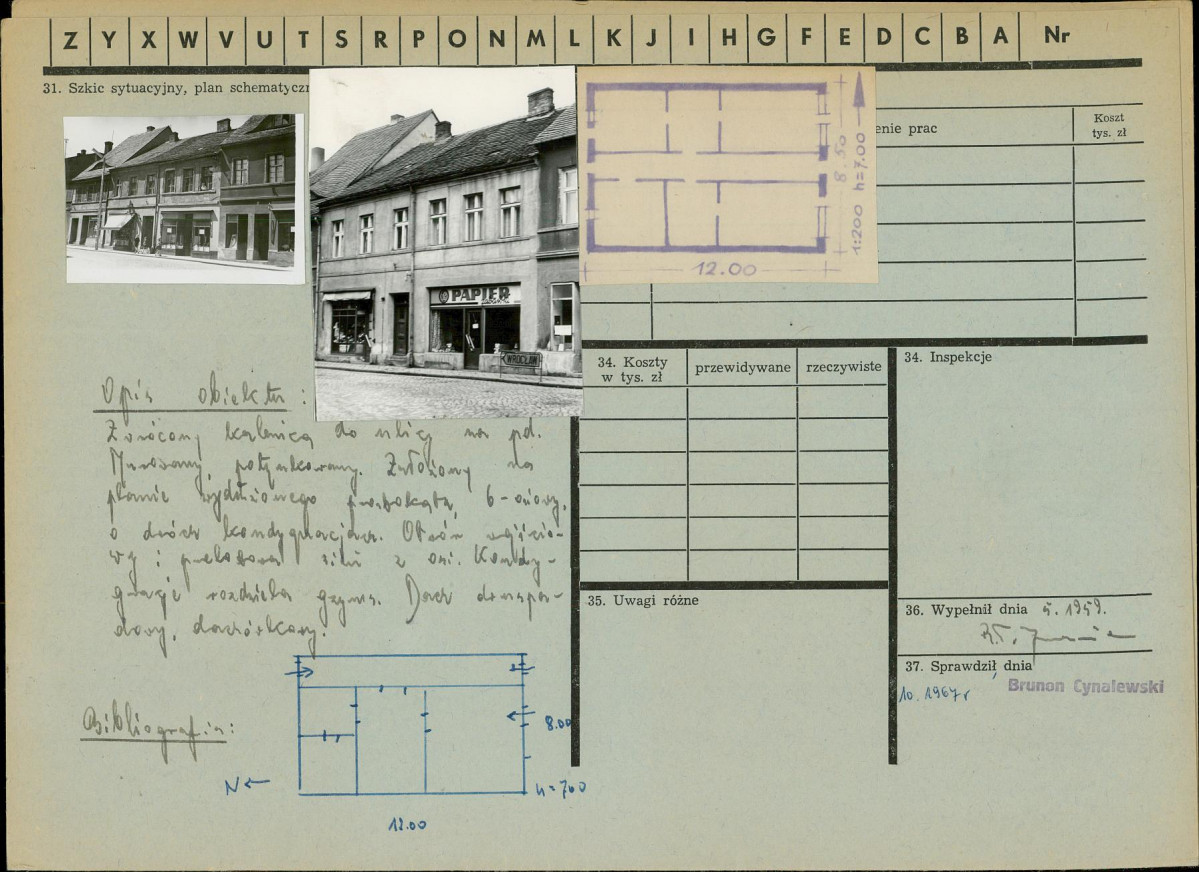 Z Y X W V U T S R P O N M L K J I H G F E D C B A Nr
31. Szkic sytuacyjny, plan schematyczn
enie prac
Koszt
tys. zł
PAPIER
WROCŁAW
12.00
8.50
1:200 h=7.00
34. Koszty
w tys. zł
przewidywane
rzeczywiste
34. Inspekcje
Opis obiektu:
Zwrócony kalenicą do ulicy na pd.
Murowany, potynkowany. Założony na
planie wydłużonego prostokąta, 6-osiowy,
o dwóch kondygnacjach. Otwór wejścio-
wy i przelotowa sień z osi. Kondy-
gnacje rozdziela gzyms. Dach dwuspa-
dowy, dachówkowy.
35. Uwagi różne
36. Wypełnił dnia 5.1959.
37. Sprawdził dnia
10.1967r
Brunon Cynalewski
Bibliografia:
8.00
N
h=700
12.00